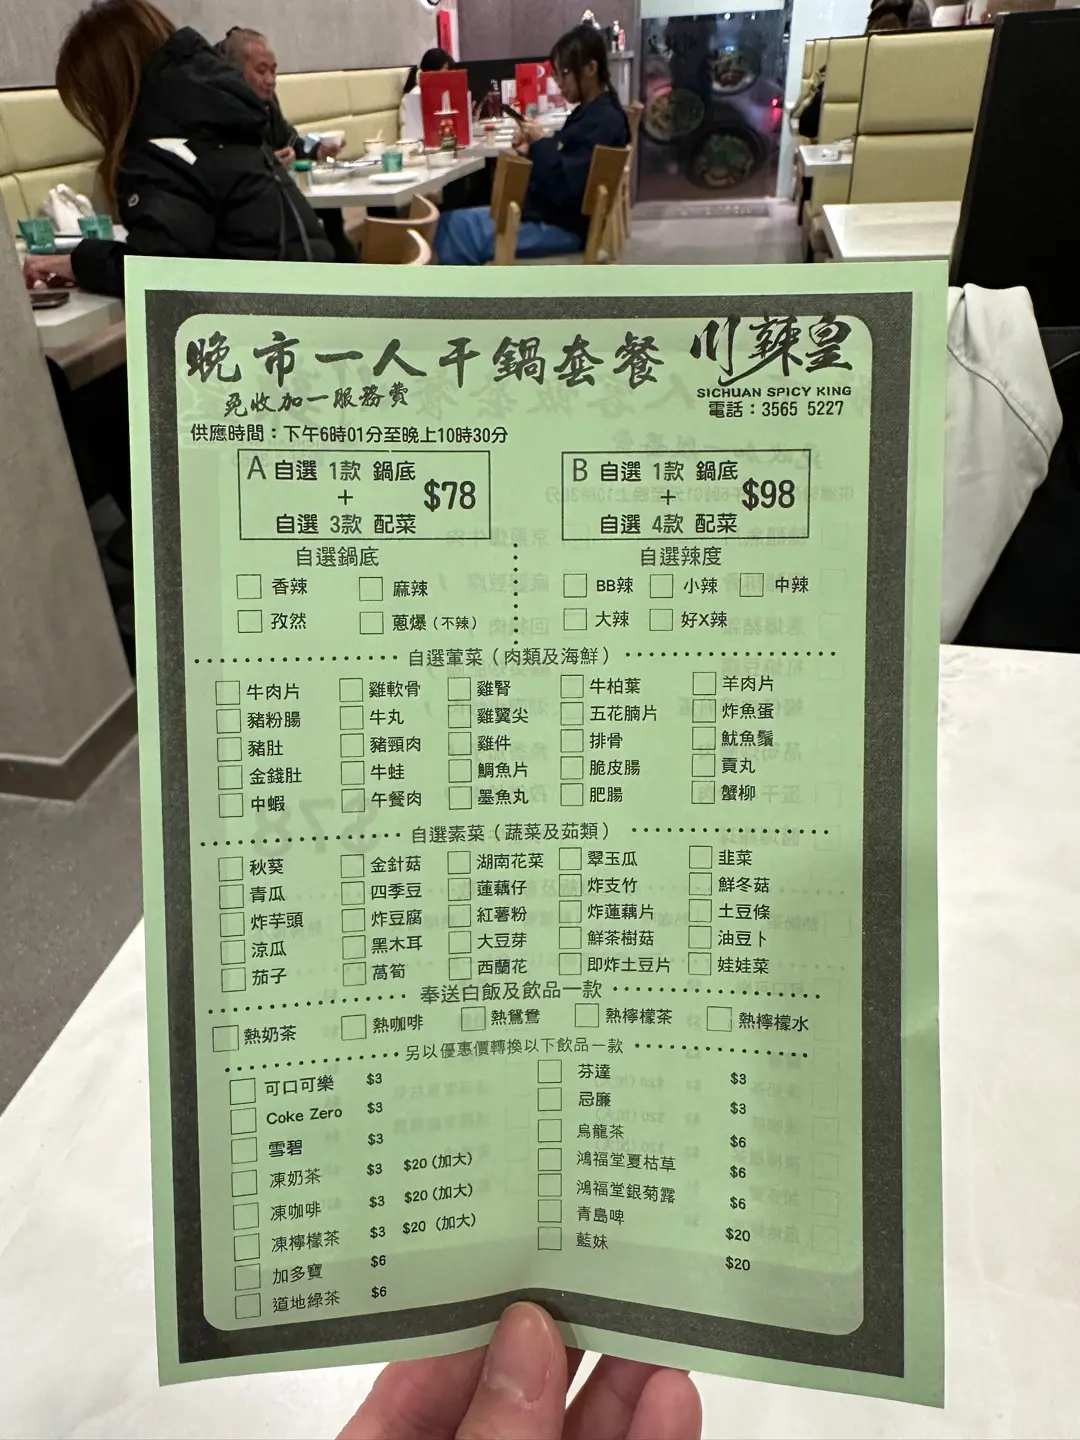 晚市一人干鍋套餐 川辣皇
免收加一服務費
SICHUAN SPICY KING
電話：3565 5227
供應時間：下午6時01分至晚上10時30分
A 自選 1款 鍋底 + 自選 3款 配菜 $78
B 自選 1款 鍋底 + 自選 4款 配菜 $98
自選鍋底 自選辣度
香辣 麻辣 BB辣 小辣 中辣
孜然 蔥爆（不辣） 大辣 好X辣
自選葷菜（肉類及海鮮）
牛肉片 雞軟骨 雞腎 牛柏葉 羊肉片
豬粉腸 牛丸 雞翼尖 五花腩片 炸魚蛋
豬肚 豬頸肉 雞件 排骨 魷魚鬚
金錢肚 牛蛙 鯛魚片 脆皮腸 貢丸
中蝦 午餐肉 墨魚丸 肥腸 蟹柳
自選素菜（蔬菜及茹類）
秋葵 金針菇 湖南花菜 翠玉瓜 韭菜
青瓜 四季豆 蓮藕仔 炸支竹 鮮冬菇
炸芋頭 炸豆腐 紅薯粉 炸蓮藕片 土豆條
涼瓜 黑木耳 大豆芽 鮮茶樹菇 油豆卜
茄子 萵筍 西蘭花 即炸土豆片 娃娃菜
奉送白飯及飲品一款
熱奶茶 熱咖啡 熱鴛鴦 熱檸檬茶 熱檸檬水
另以優惠價轉換以下飲品一款
可口可樂 $3 芬達 $3
Coke Zero $3 忌廉 $3
雪碧 $3 烏龍茶 $6
凍奶茶 $3 $20（加大） 鴻福堂夏枯草 $6
凍咖啡 $3 $20（加大） 鴻福堂銀菊露 $6
凍檸檬茶 $3 $20（加大） 青島啤 $20
加多寶 $6 藍妹 $20
道地綠茶 $6